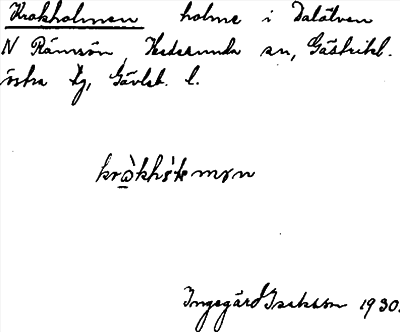 Krokholmen holme i Dalälven
N Rämsön Hedesunda sn, Gästrikl.
östra tg, Gävleb. l.
Ingegärd Isaksson 1930.